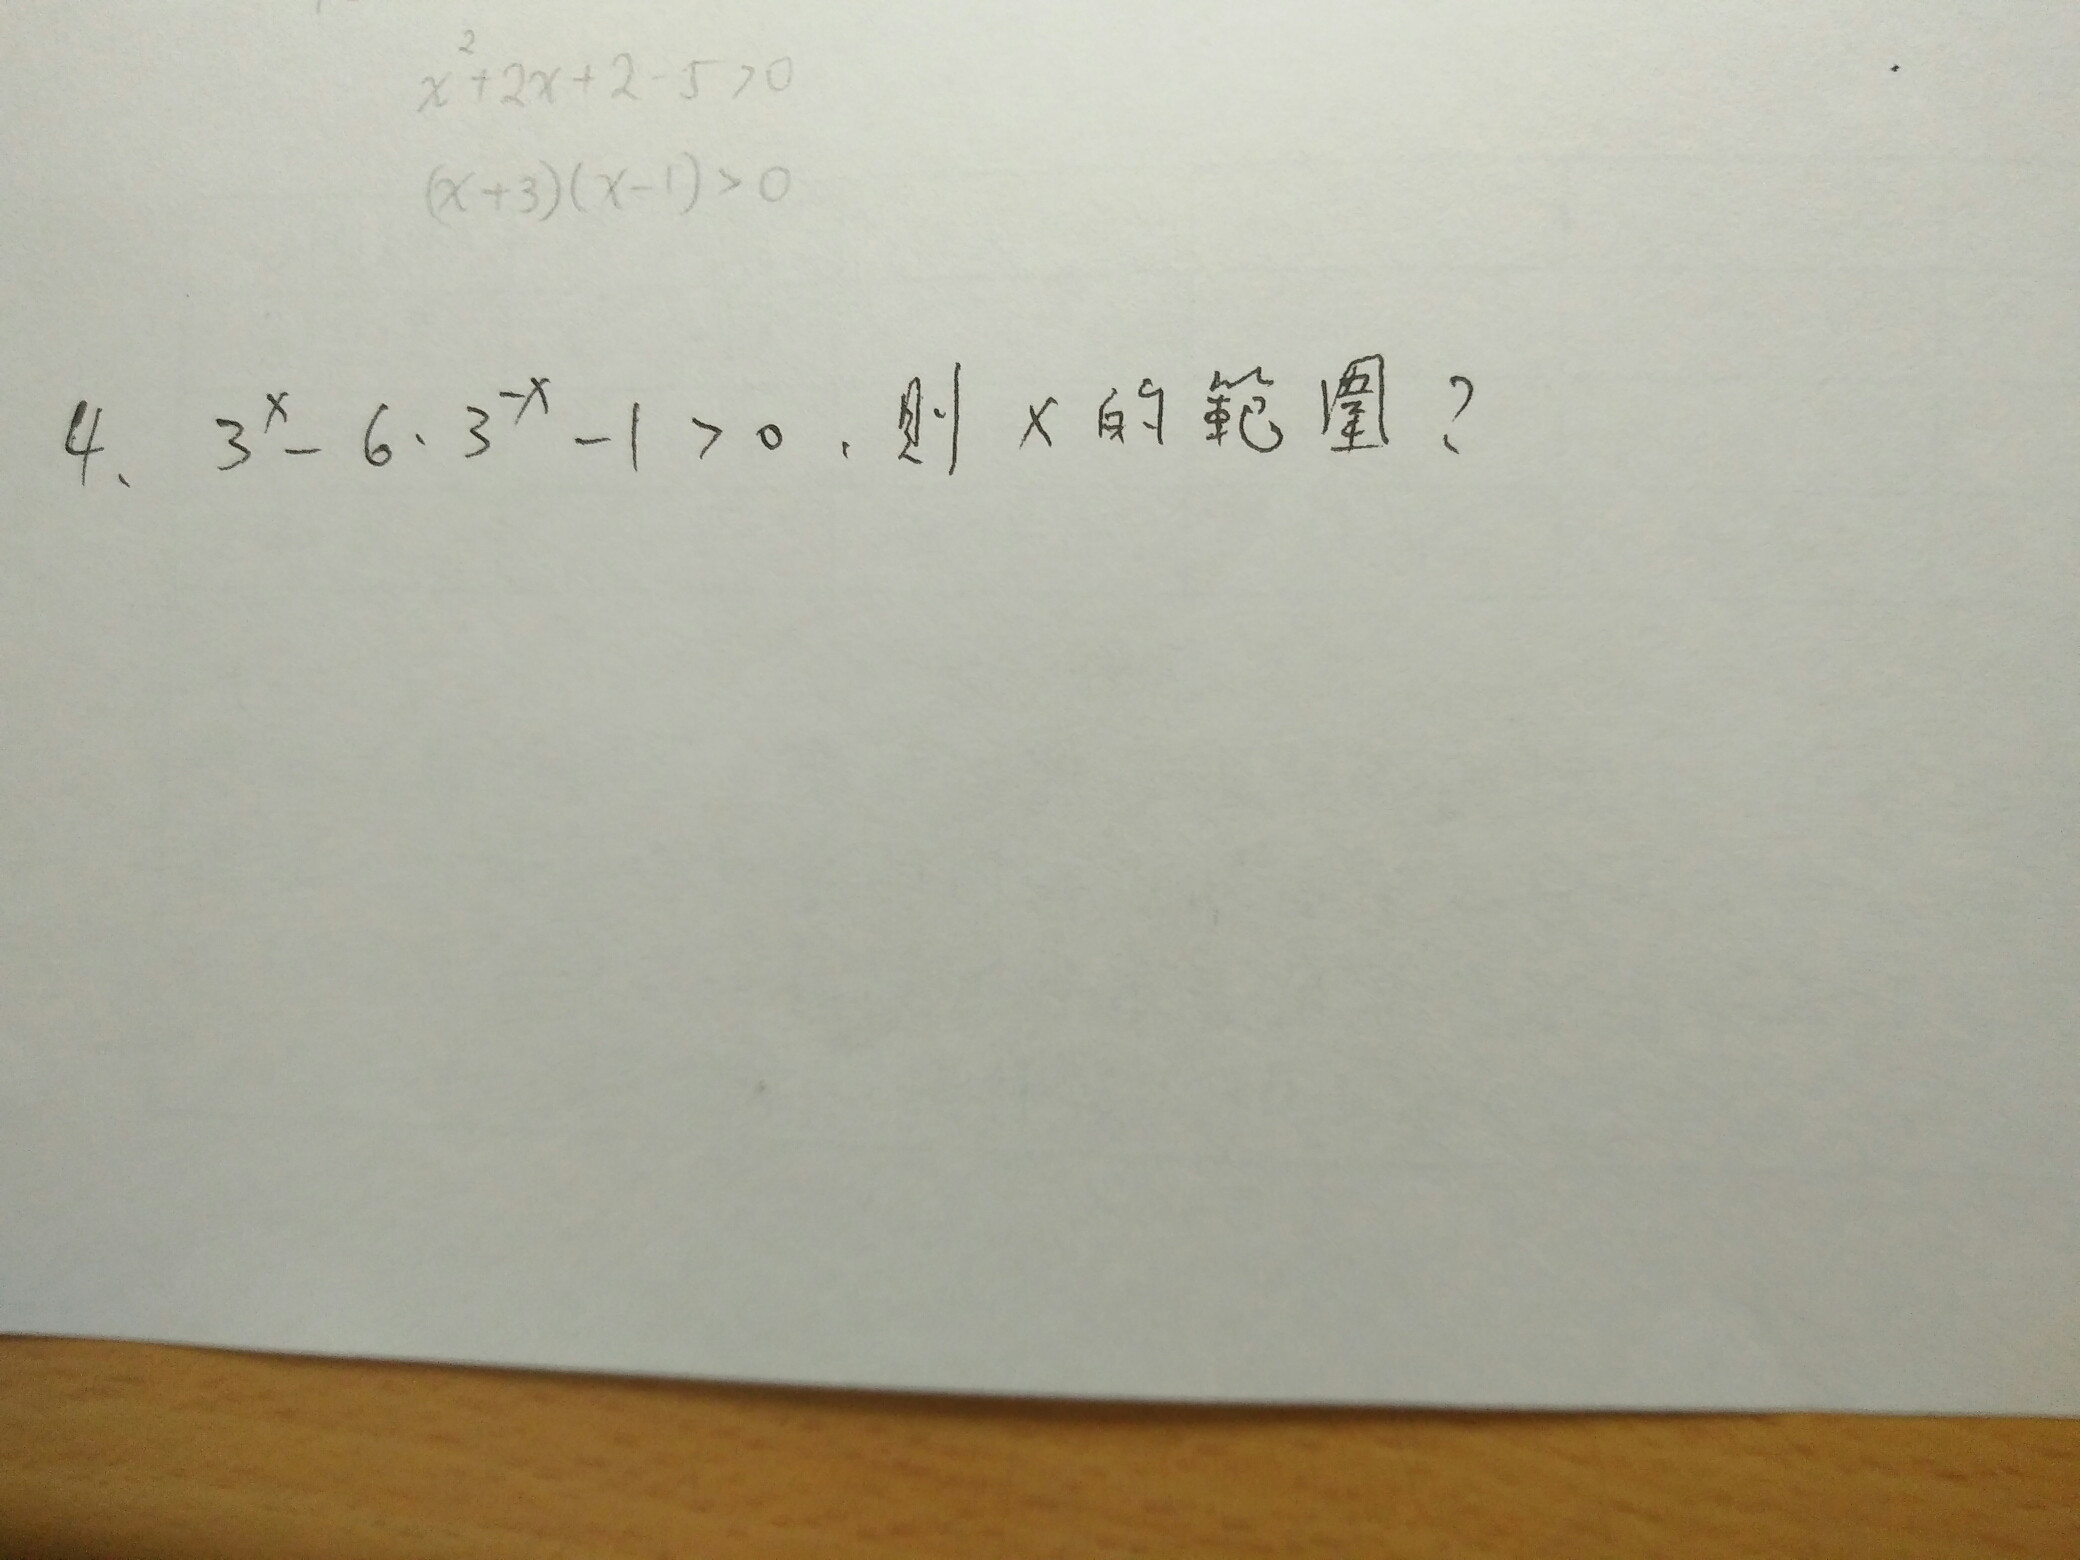 x²+2x+2-5>0
(x+3)(x-1)>0
4、 3ˣ-6·3⁻ˣ-1>0,則x的範圍?